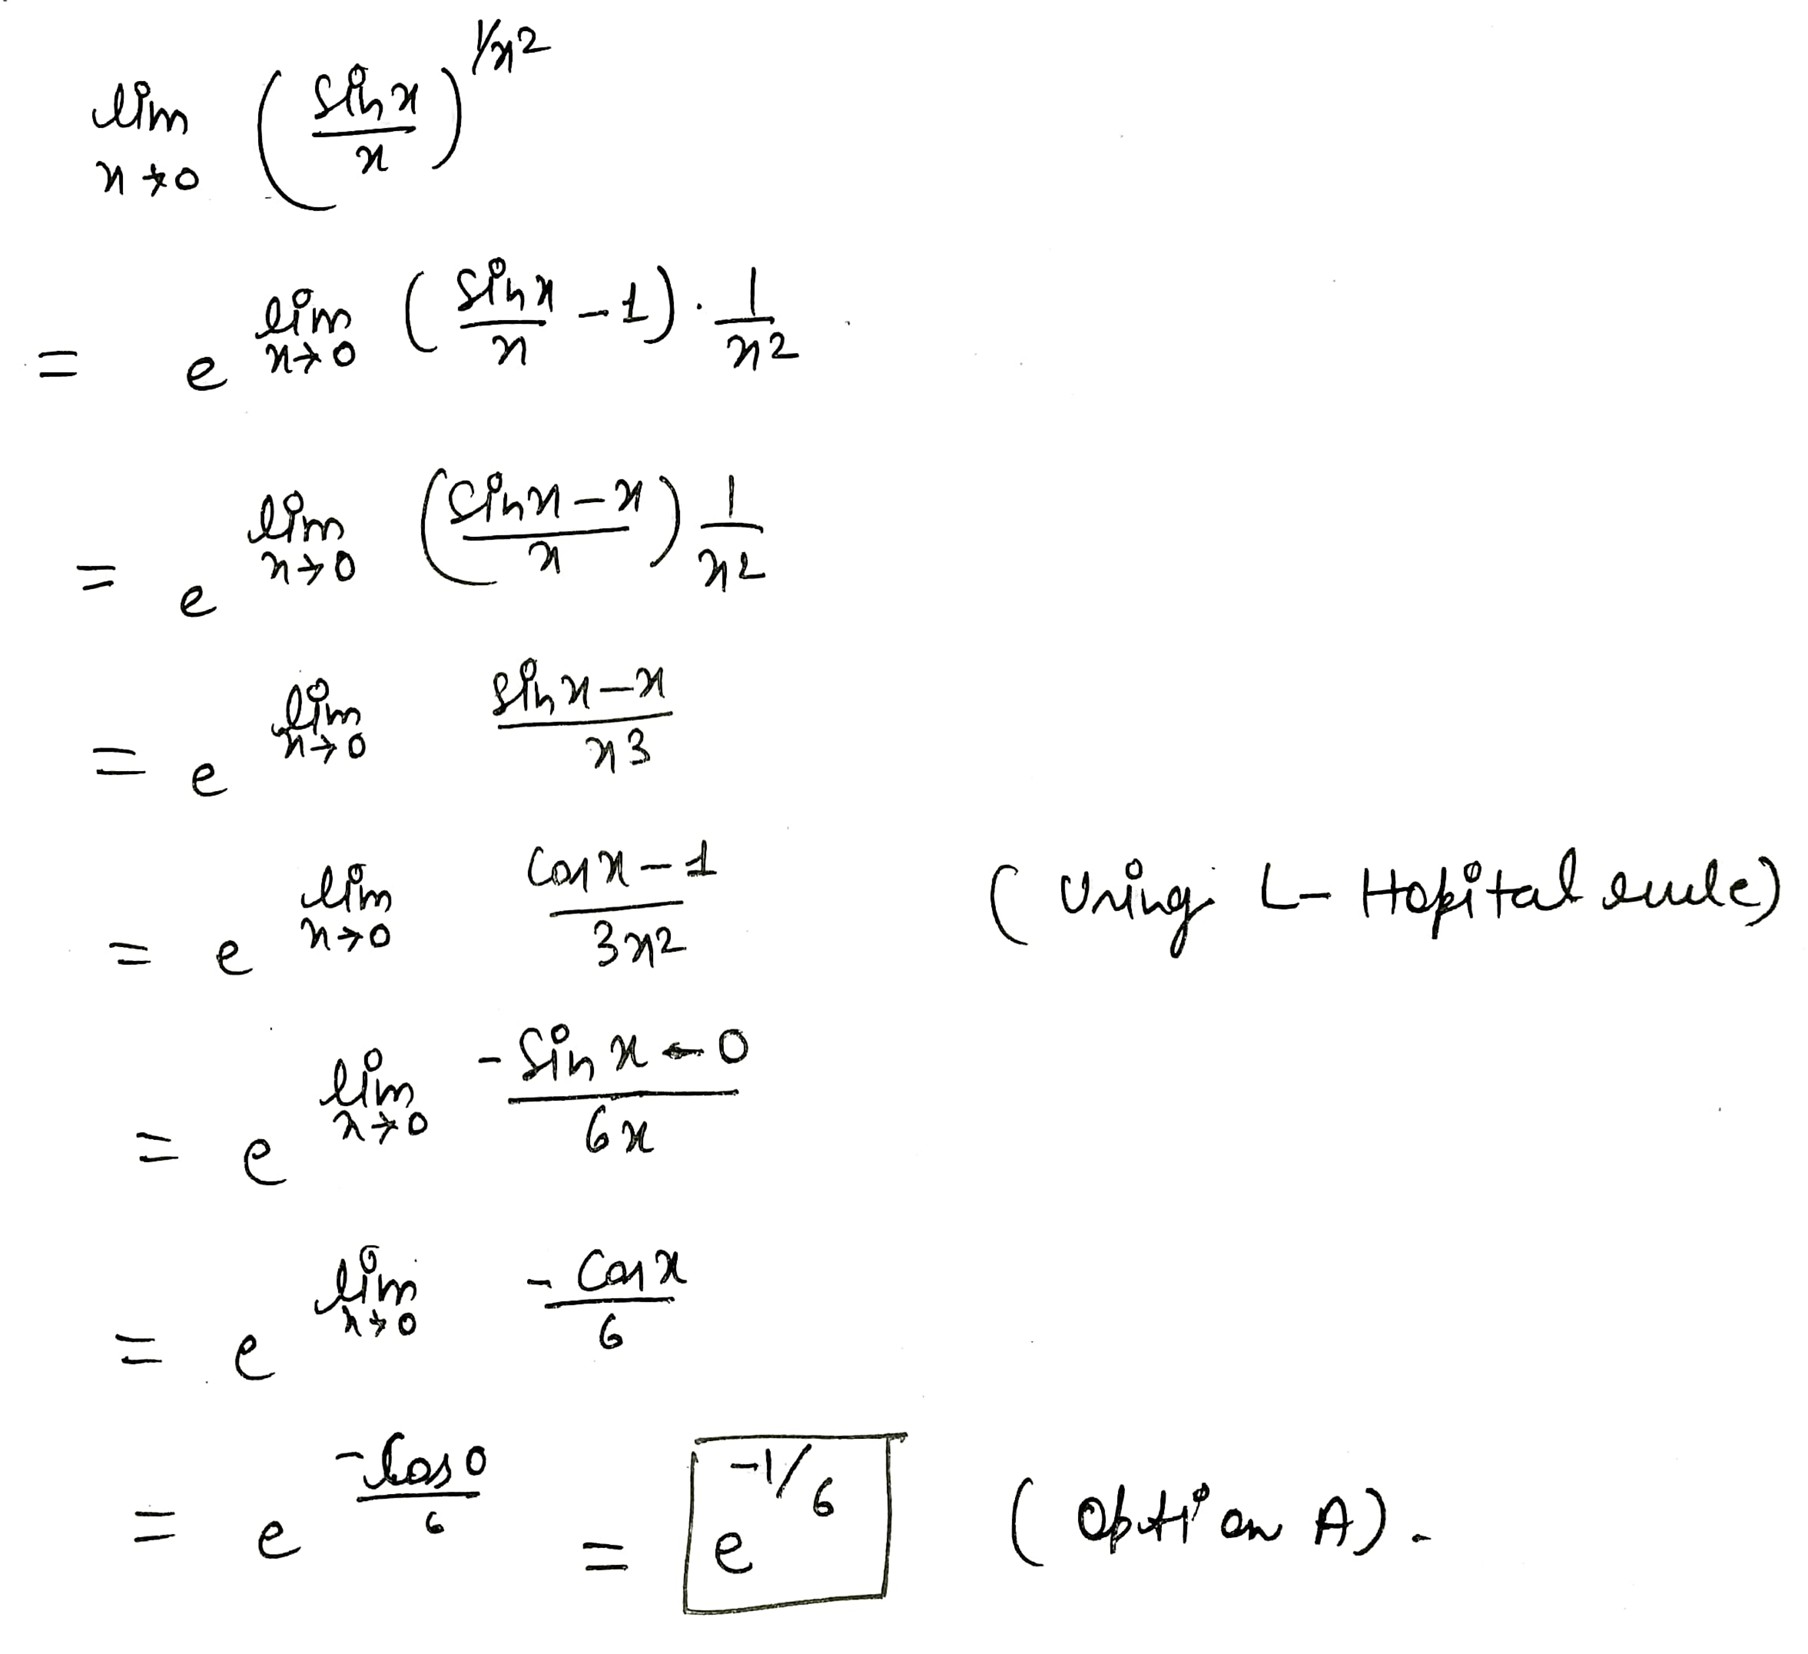 lim x→0 (sin x / x)^1/x2
= e^lim x→0 (sin x / x - 1) · 1/x2
= e^lim x→0 (sin x - x / x) 1/x2
= e^lim x→0 sin x - x / x3
= e^lim x→0 cos x - 1 / 3x2 (Using L-Hopital rule)
= e^lim x→0 - sin x - 0 / 6x
= e^lim x→0 - cos x / 6
= e^-cos 0 / 6 = e^-1/6 (Option A).